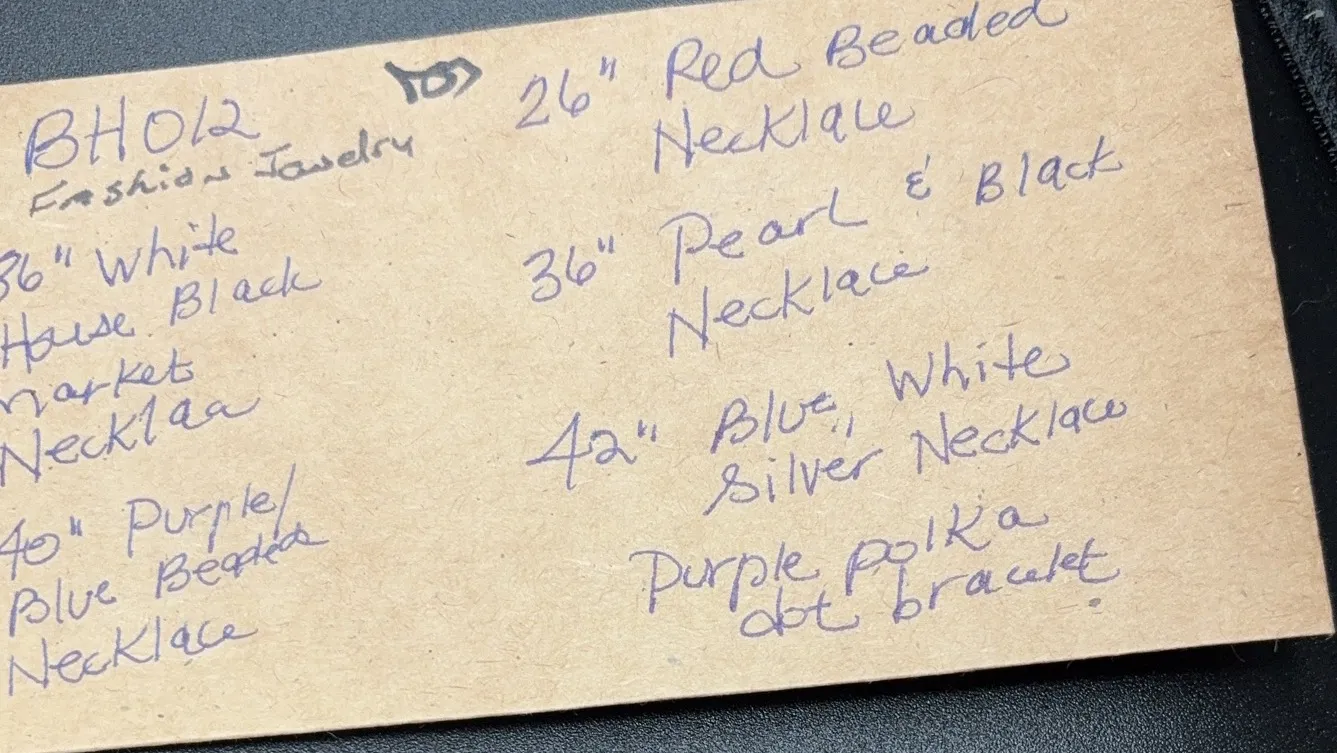 BH012
Fashion Jewelry
36" White
House Black
Market
Necklace
40" Purple/
Blue Beaded
Necklace
26" Red Beaded
Necklace
36" Pearl & Black
Necklace
42" Blue, White
Silver Necklace
Purple polka
dot bracelet